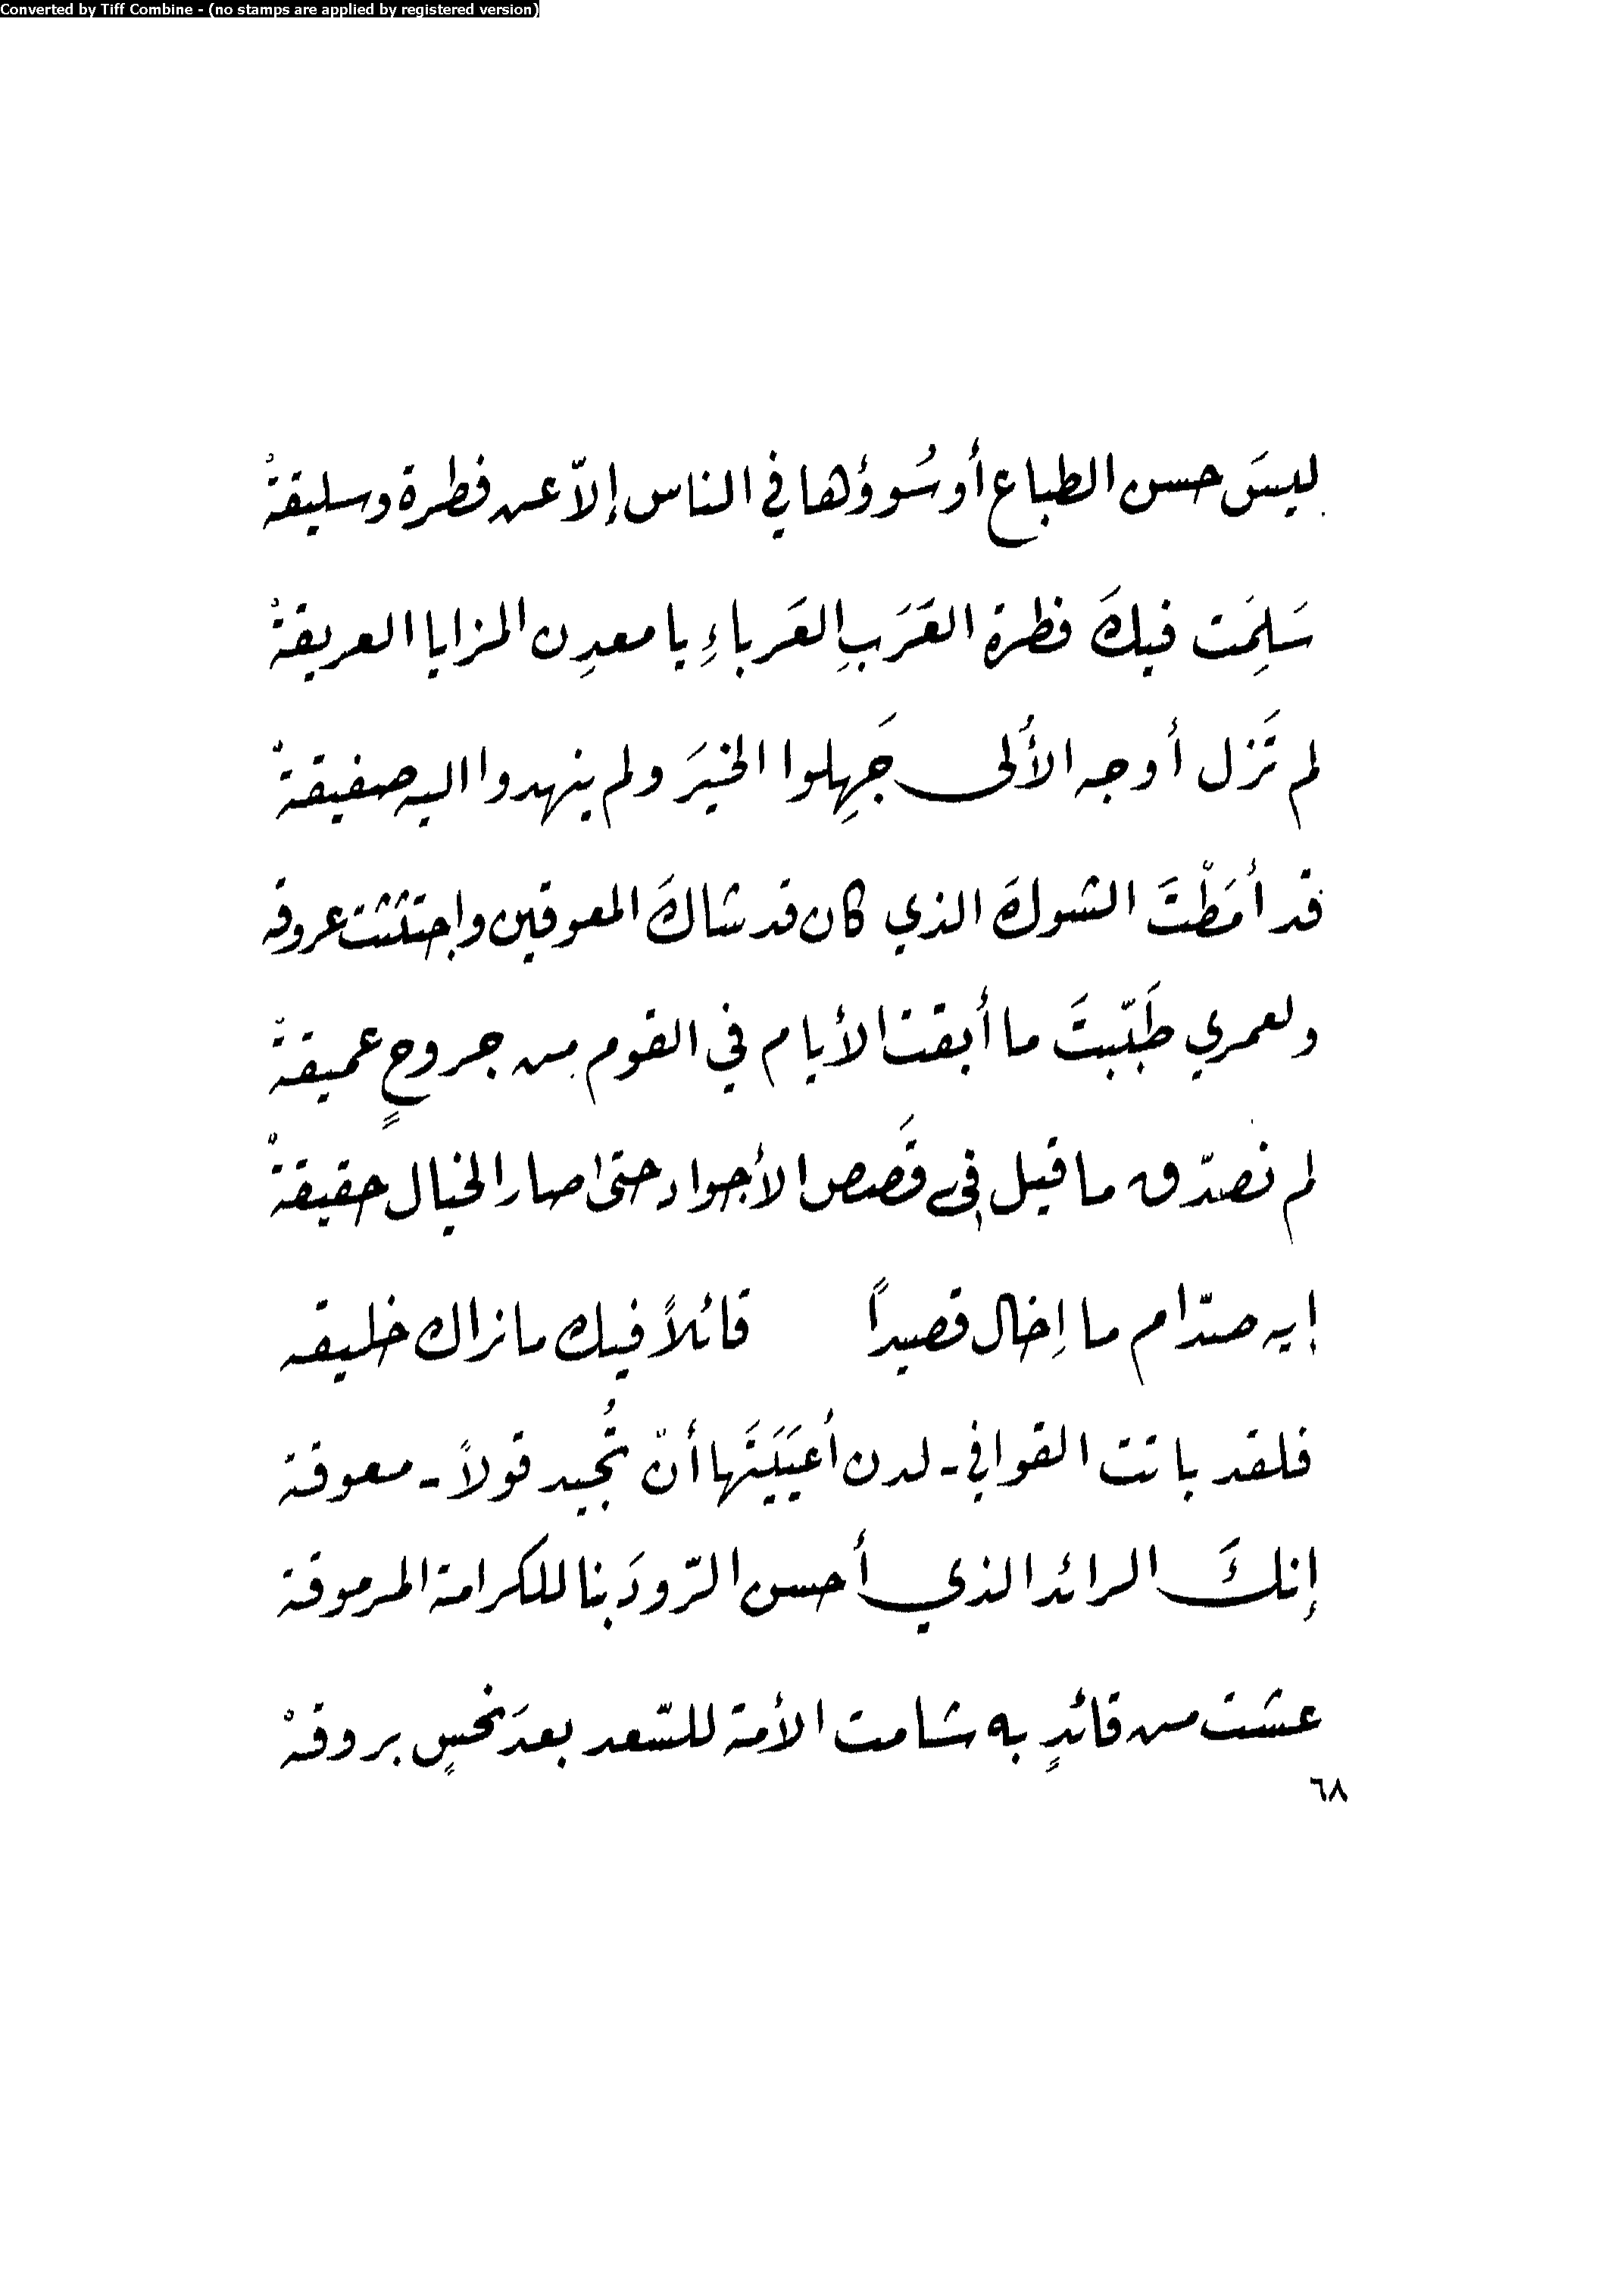 Converted by Tiff Combine - (no stamps are applied by registered version)
ليسَ حسن الطباع أو سُوؤها في الناس إلاّ عن فطرة وسليقةْ
سَلِمَت فيكَ فطرة العَرَبِ العَرباءِ يا معدِن المزايا العريقةْ
لم تَزل أوجه الأُلى جَهِلوا الخيرَ ولم ينهدوا اليه صفيقةْ
قد أمَطْتَ الشوكَ الذي كان قد شاكَ المعوقين واجتثثت عروقه
ولعمري طَبّبتَ ما أبقت الأيام في القوم من جروحٍ عميقةْ
لم نصدّق ما قيل في قَصص الأجواد حتى صار الخيال حقيقةْ
إيه صدّام ما إخال قصيداً قائلاً فيك ما نراك خليقه
فلقد باتت القوافي - لدن أعيَيَتَها أنّ تُجيد قولاً - معوقة
إنكَ الرائد الذي أحسن الرّودَ بنا للكرامة المرموقة
عشت من قائدٍ به شامت الأمة للسّعد بعدَ نحسٍ بروقهْ
٦٨